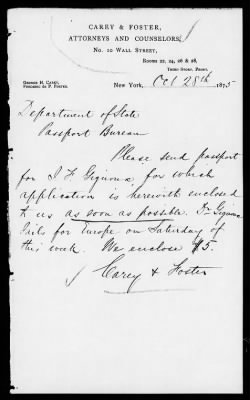 CAREY & FOSTER,
ATTORNEYS AND COUNSELORS,
No. 10 WALL STREET,
ROOMS 22, 24, 26 & 28,
THIRD STORY, FRONT.
GEORGE H. CAREY,
FREDERIC DE P. FOSTER.
New York, Oct 28th 1875
Department of State
Passport Bureau
Please send passport
for J F Gignoux for which
application is herewith enclosed
to us as soon as possible. Mr Gignoux
sails for Europe on Saturday of
this week. We enclose $5.
Carey & Foster